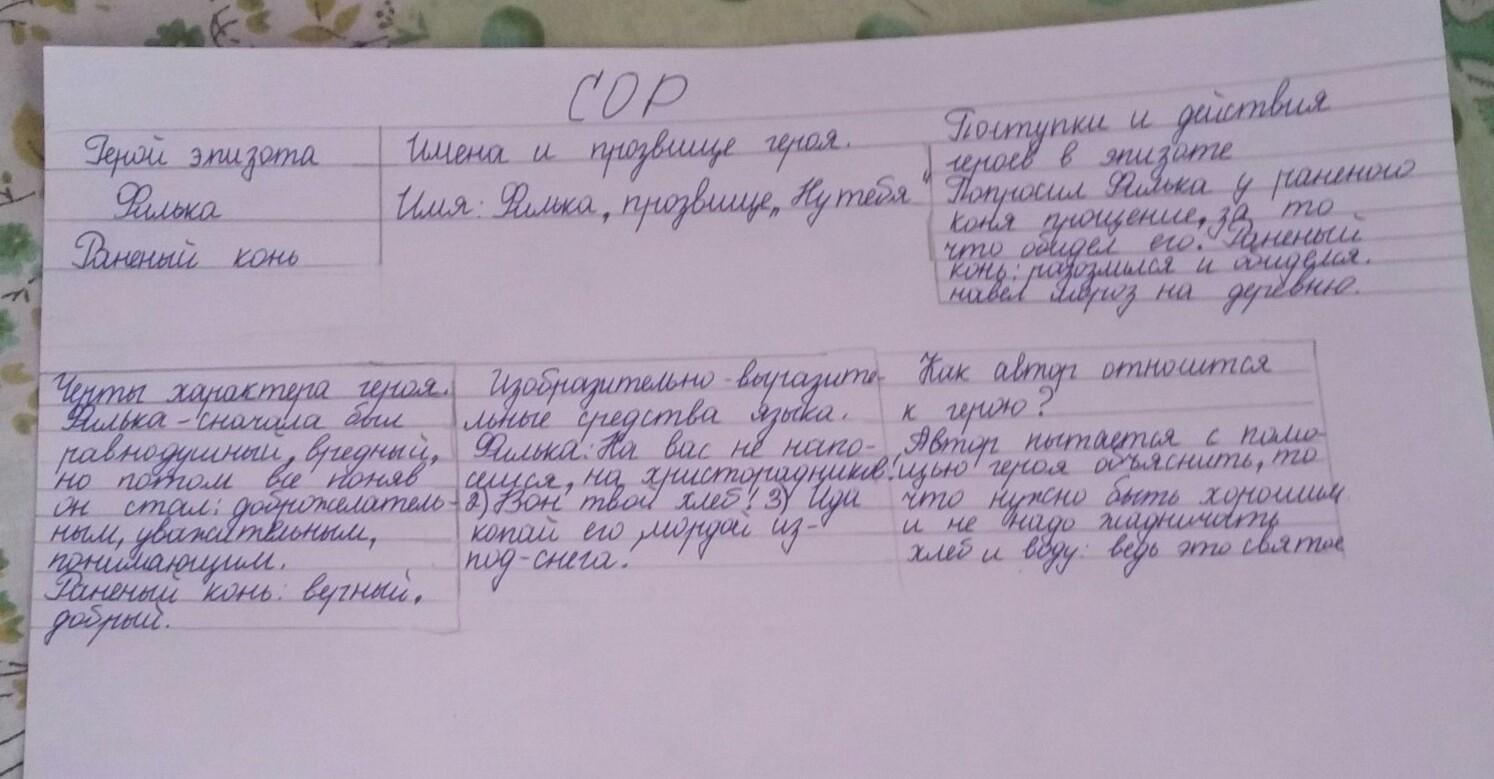 СОР
Герой эпизота
Филька
Раненый конь
Имена и прозвище героя.
Имя: Филька, прозвище „Ну тебя"
Поступки и действия
героев в эпизоте
Попросил Филька у раненого
коня прощение, за то
что обидел его. Раненый
конь: разозлился и обиделся.
навел мороз на деревню.
Черты характера героя.
Филька - сначала был
равнодушный, вредный,
но потом все поняв
он стал: доброжелатель-
ным, уважительным,
понимающим.
Раненый конь: верный,
добрый.
Изобразительно-выразите-
льные средства языка.
Филька: На вас не напо-
сишся, на христорадников!
2) Вон твой хлеб! 3) Иди
копай его мордой из-
под-снега!
Как автор относится
к герою?
Автор пытается с помо-
щью героя объяснить, то
что нужно быть хорошим
и не надо жадничать
хлеб и воду: ведь это святое